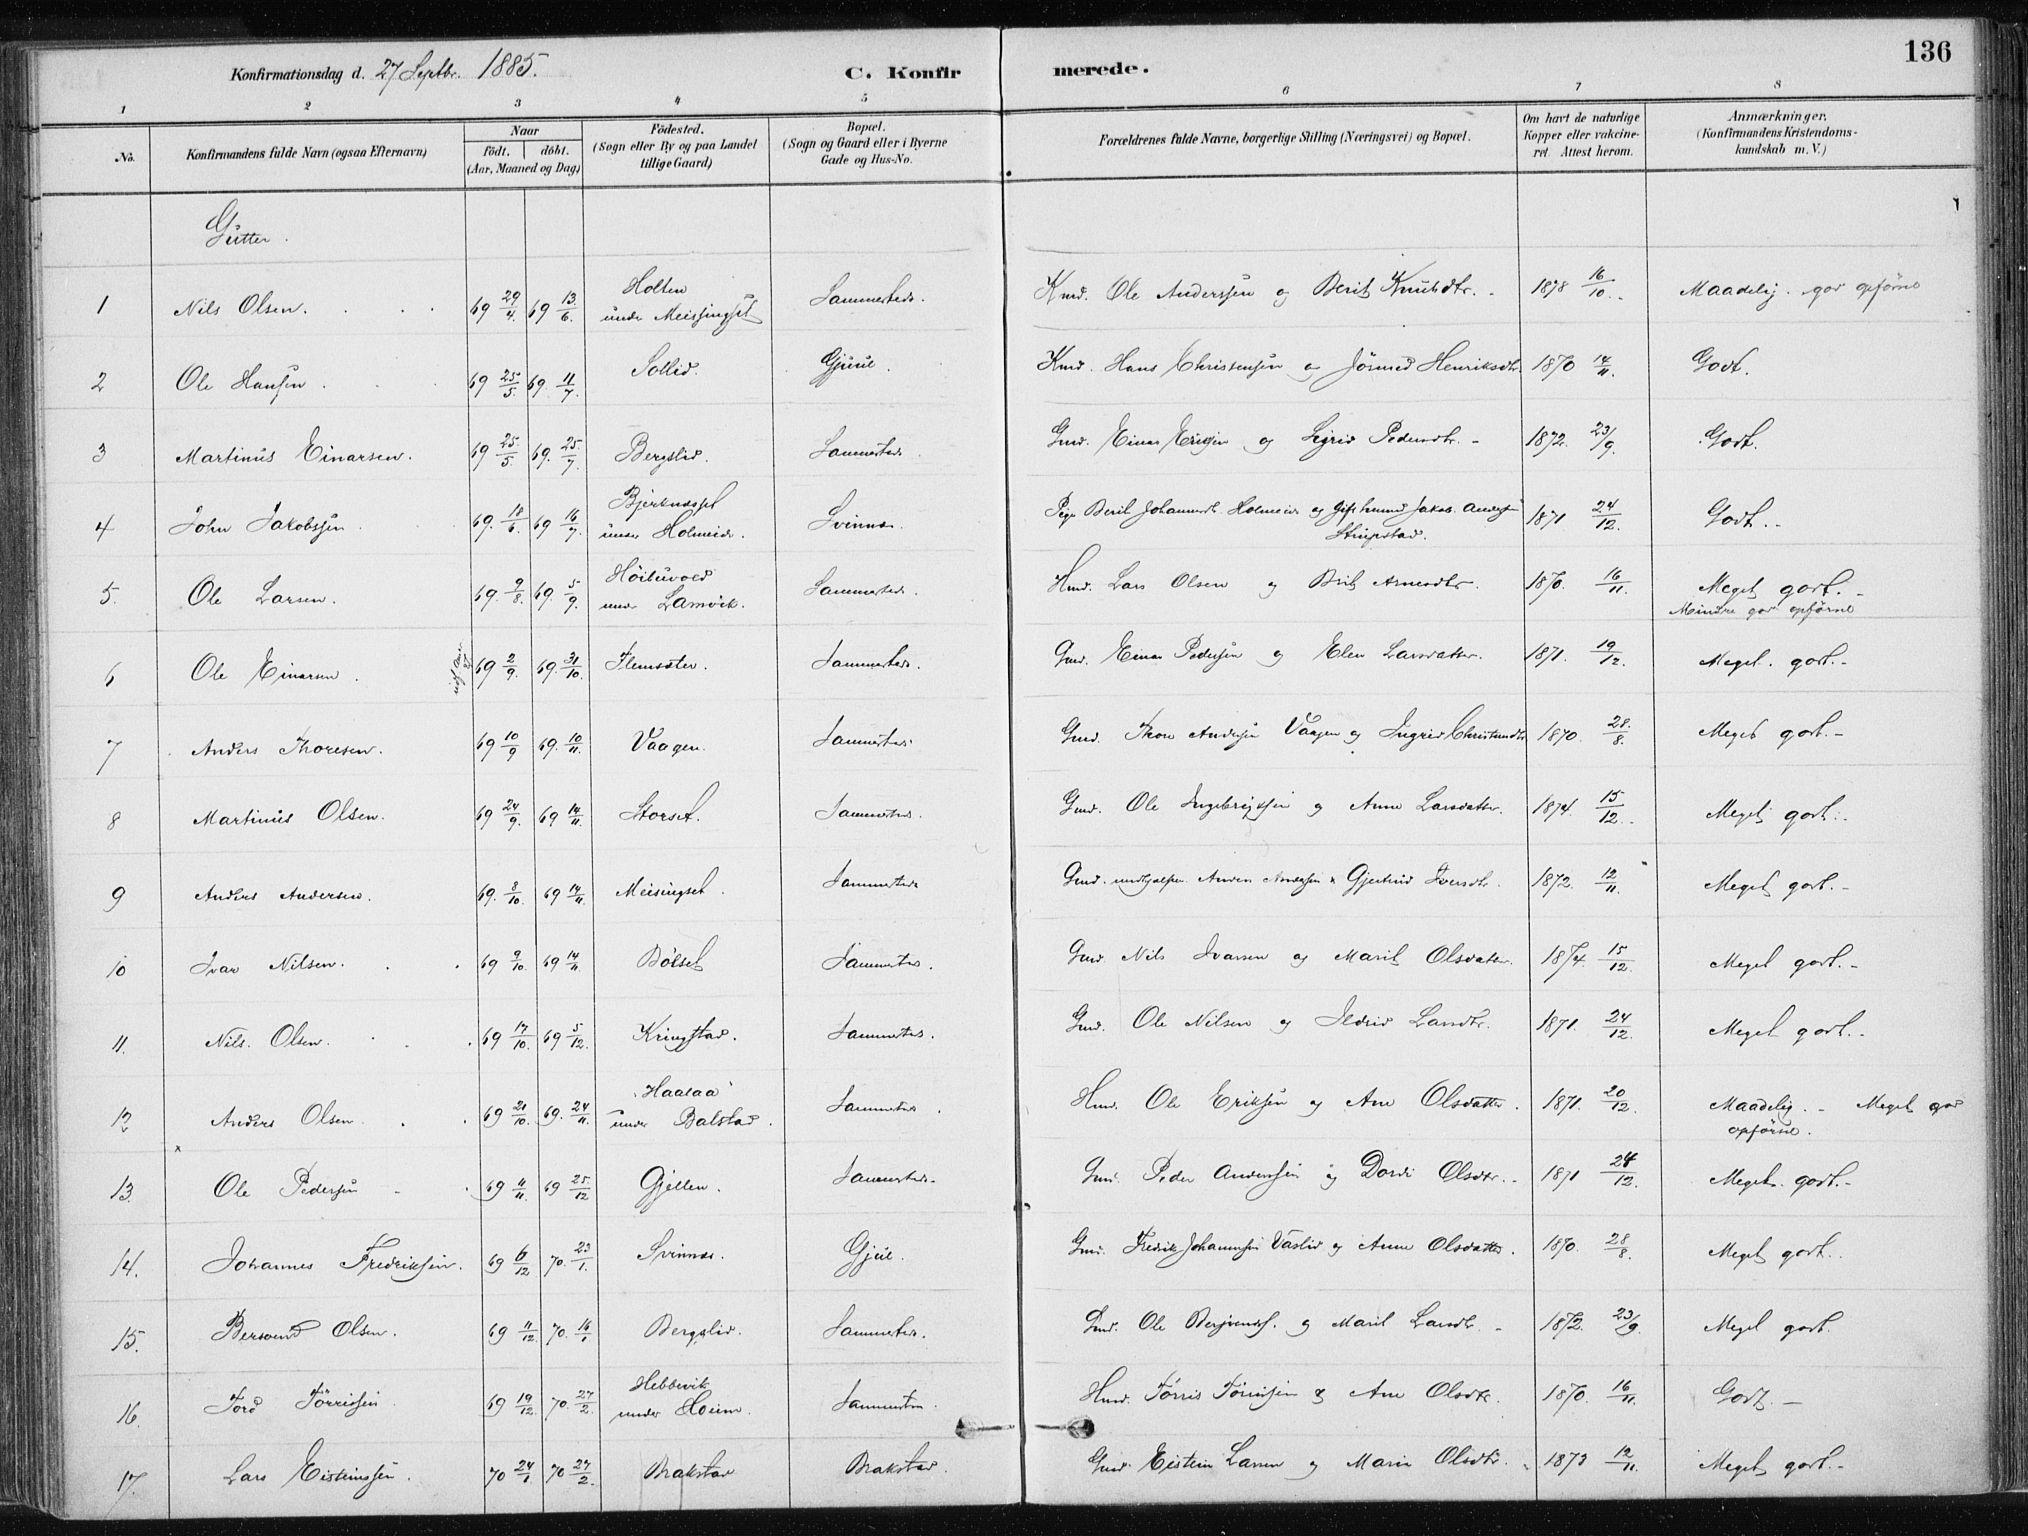 136
Konfirmationsdag d. 27 Septbr. 1885.
C. Konfirmerede.
1 2 3 4 5 6 7 8
No.
Konfirmandens fulde Navn (ogsaa Efternavn)
Naar
født. | döbt.
(Aar, Maaned og Dag)
Födested.
(Sogn eller By og paa Landet
tillige Gaard)
Bopæl.
(Sogn og Gaard eller i Byerne
Gade og Hus-No.
Forældrenes fulde Navne, borgerlige Stilling (Næringsvei) og Bopæl.
Om havt de naturlige
Kopper eller vakcine-
ret. Attest herom.
Anmærkninger.
(Konfirmandens Kristendoms-
kundskab m. V.)
Gutter.
1 Nils Olsen. 69 29/4. 69 13/6. Holten under Meissingset Sammesteds. Kmd. Ole Anderssen og Berit Knudsdtr. 1878 16/10. Maadelig. god opførsel
2 Ole Hansen. 69 25/5. 69. 11/7. Sollid. Gjuul. Kmd. Hans Christensen og Jörund Henriksdtr. 1870 14/11. Godt.
3 Martinus Einarsen. 69 25/5. 69. 25/7. Bergslid. Sammesteds. Gmd. Einar Ericsen og Sigrid Pedersdtr. 1872. 23/9. Godt.
4 John Jakobssen. 69. 18/6. 69 16/7. Bjerknesset under Holmeide. Svinnas. Pige Berit Johannesdt. Holmeide og Gift mand Jakob Anders. Strupstad. 1871 24/12. Godt.
5. Ole Larsen. 69. 9/8. 69. 5/9. under Lamvik. Sammesteds. Hmd. Lars Olsen og Brit Arnesdtr. 1870. 16/11. Meget godt.
Mindre god opførsel
6 Ole Einarsen. 69 2/9. 69. 31/10. Flemsæter. Sammesteds. Gmd. Einar Pedersen og Elen Larsdatter. 1871. 19/12. Meget godt.
7 Anders Thoresen. 69 10/9 69. 10/11. Vaagen. Sammesteds. Gmd. Thore Andersen Vaagen og Ingrid Christensdtr. 1870. 28/8. Meget godt.
8 Martinus Olsen. 69 24/9. 69 14/11. Storset. Sammesteds. Gmd. Ole Ingebrigtsen og Anne Larsdatter. 1874. 15/12. Meget godt.
9 Anders Andersen. 69. 8/10. 69 14/11. Meisingset. Sammesteds Gmd. Anders Andersen & Gjertrud Iversdtr. 1872. 12/11. Meget godt.
10 Ivar Nilsen. 69 9/10. 69 14/11. Bölset Sammesteds. Gmd. Nils Ivarsen og Marit Olsdatter. 1874. 15/12. Meget godt.
11. Nils Olsen. 69 17/10. 69 5/12. Kringstad. Sammesteds. Gmd. Ole Nilsen og Ildrid Larsdtr. 1871. 24/12. Meget godt.
12 Anders Olsen. 69 21/10. 69. 24/11. Haasaa under Balstad. Sammesteds. Hmd. Ole Eriksen og Ane Olsdatter. 1871. 20/12. Maadelig. Meget god
opførsel.
13. Ole Pedersen 69 11/11. 69 25/12 Gjellen. Sammesteds. Gmd. Peder Anderssen og Dordi Olsdtr. 1871 24/12. Meget godt.
14. Johannes Fredriksen. 69 6/12 70. 23/1. Svinnas. Gjuul. Gmd. Fredrik Johannesen Vaslid og Anne Olsdatter. 1870. 28/8. Meget godt.
15. Bersvend Olsen. 69 11/12. 70. 16/1 Bergslid. Sammesteds. Gmd. Ole Bersvends. og Marit Larsdtr. 1872. 23/9. Meget godt.
16. Tord Törrissen 69 19/12. 70. 27/2. Hebbevik under Hoeim. Sammesteds. Hmd. Törris Törrissen og Ane Olsdtr. 1870. 16/11. Godt.
17. Lars Eisteinssen. 70 24/1. 70 27/2. Brakstad Brakstad. Gmd. Eistein Larsen og Marie Olsdtr. 1873 12/11. Meget godt.